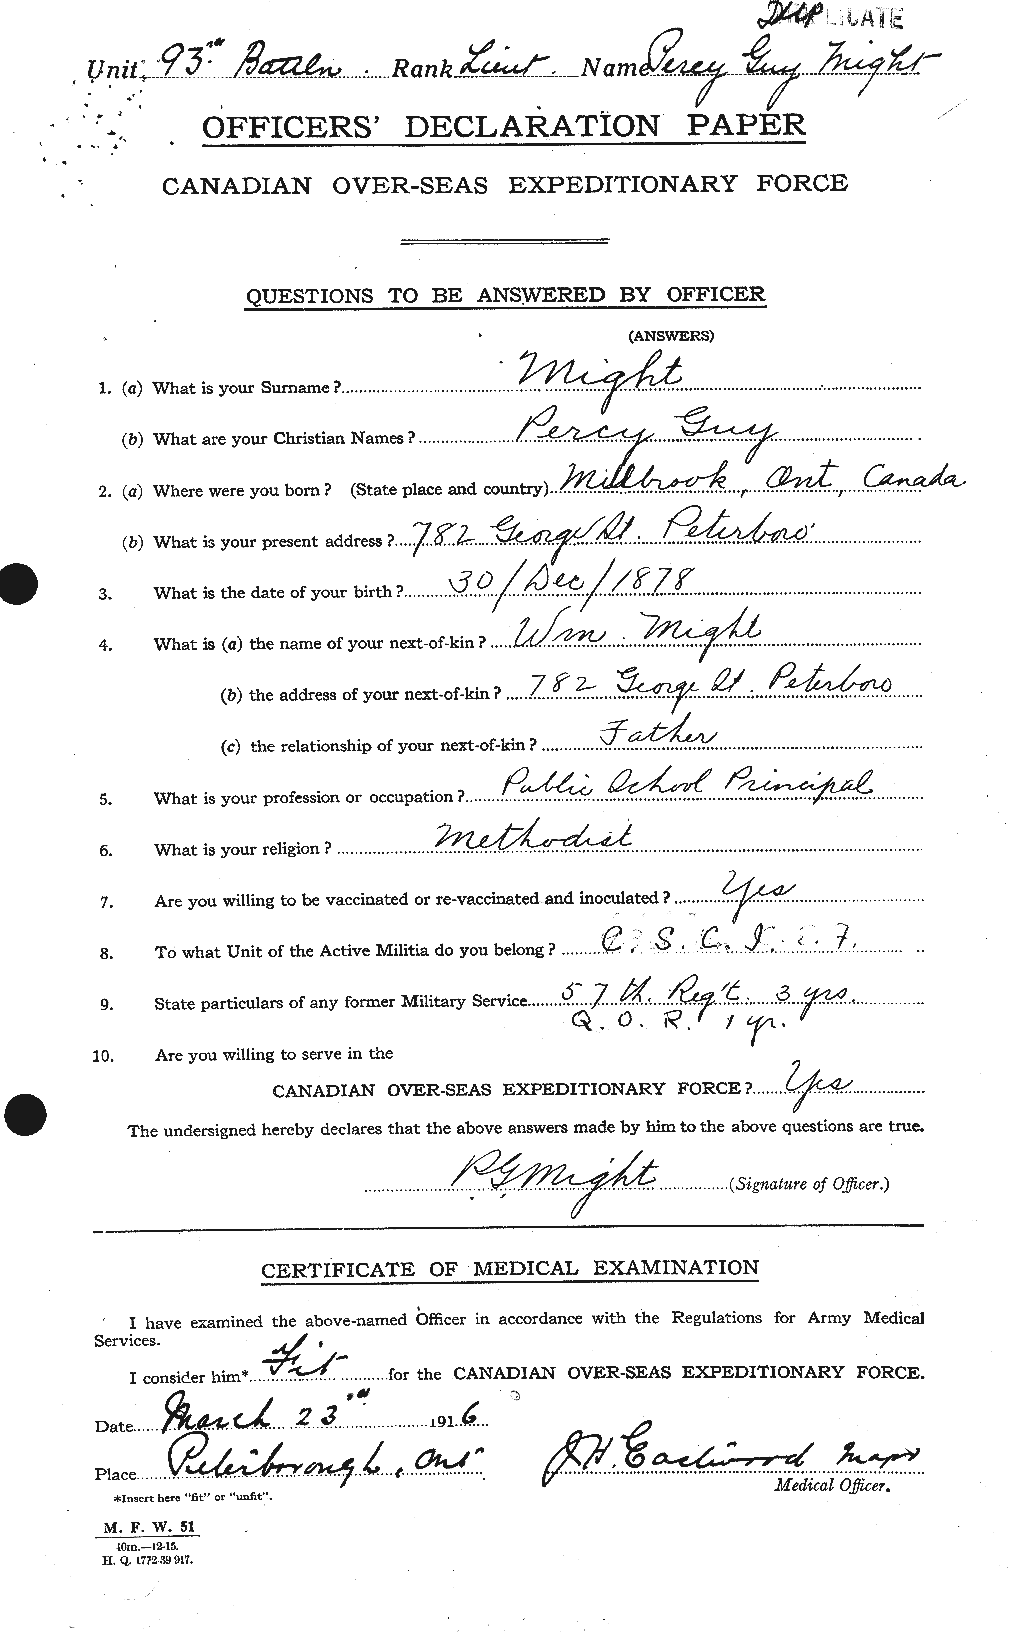 DUPLICATE
Unit, 93rd Battln. Rank Lieut. Name Percy Guy Might
OFFICERS' DECLARATION PAPER
CANADIAN OVER-SEAS EXPEDITIONARY FORCE
QUESTIONS TO BE ANSWERED BY OFFICER
(ANSWERS)
1. (a) What is your Surname? Might
(b) What are your Christian Names? Percy Guy
2. (a) Where were you born? (State place and country) Millbrook, Ont, Canada
(b) What is your present address? 782 George St. Peterboro
3. What is the date of your birth? 30/Dec/1878
4. What is (a) the name of your next-of-kin? Wm. Might
(b) the address of your next-of-kin? 782 George St. Peterboro
(c) the relationship of your next-of-kin? Father
5. What is your profession or occupation? Public School Principal
6. What is your religion? Methodist
7. Are you willing to be vaccinated or re-vaccinated and inoculated? Yes
8. To what Unit of the Active Militia do you belong? C. S. C. I.
9. State particulars of any former Military Service 57th. Reg't. 3 yrs.
Q. O. R. 1 yr.
10. Are you willing to serve in the
CANADIAN OVER-SEAS EXPEDITIONARY FORCE? Yes
The undersigned hereby declares that the above answers made by him to the above questions are true.
PGMight (Signature of Officer.)
CERTIFICATE OF MEDICAL EXAMINATION
I have examined the above-named Officer in accordance with the Regulations for Army Medical
Services.
I consider him* Fit for the CANADIAN OVER-SEAS EXPEDITIONARY FORCE.
Date March 23rd 1916
Place Peterborough, Ont J.H. Eastwood Major
*Insert here "fit" or "unfit". Medical Officer.
M. F. W. 51
40m.—12-15.
H. Q. 1772-39 917.